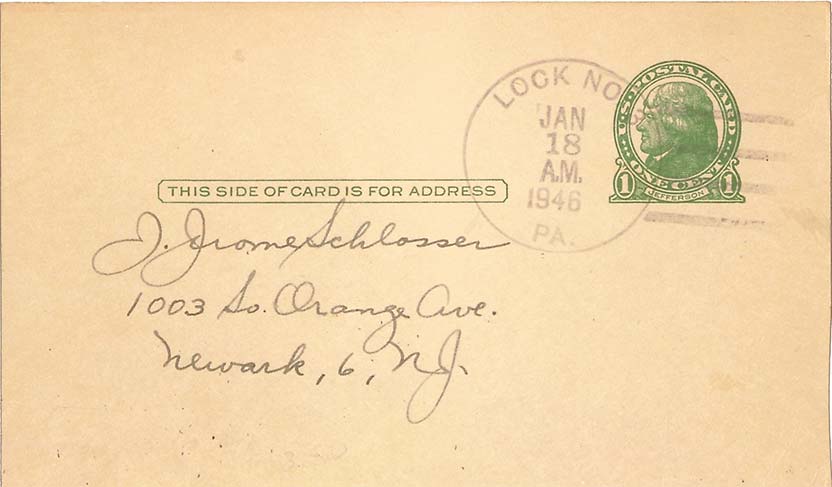 LOCK NO
JAN
18
A.M.
1946
PA.
U.S. POSTAL CARD
ONE CENT
1 JEFFERSON 1
THIS SIDE OF CARD IS FOR ADDRESS
J. Jrome Schlosser
1003 So. Orange Ave.
Newark, 6, N.J.